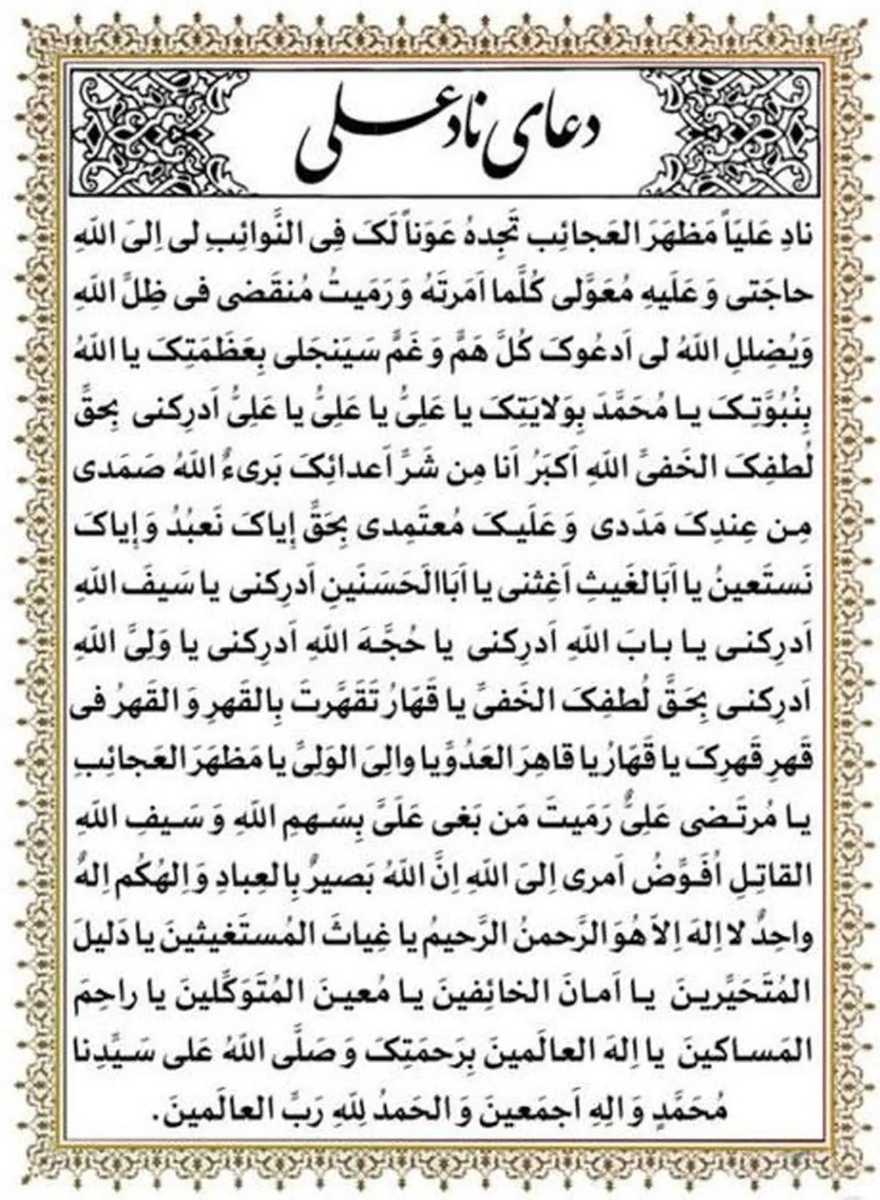 دعای ناد علی
نادِ عَلیَاً مَظهَرَ العَجائِب تَجِدهُ عَوَناً لَکَ فِی النَّوائِبِ لی اِلیَ اللّهِ
حاجَتی وَ عَلَیهِ مُعَوَّلی کُلَّما اَمَرتَهُ وَ رَمَیتُ مُنقَضی فی ظِلِّ اللّهِ
وَیُضِللِ اللّهُ لی اَدعُوکَ کُلَّ هَمٍّ وَ غَمٍّ سَیَنجَلی بِعَظَمَتِکَ یا اللّهُ
بِنُبُوَّتِکَ یا مُحَمَّدَ بِوَلایَتِکَ یا عَلِیُّ یا عَلِیُّ یا عَلِیُّ اَدرِکنی بِحقِّ
لُطفِکَ الخَفیِّ اللّهِ اَکبَرُ اَنا مِن شَرِّ اَعدائِکَ بَریءُ اللّهُ صَمَدی
مِن عِندِکَ مَدَدی وَ عَلَیکَ مُعتَمِدی بِحَقِّ إیاکَ نَعبُدُ وَ إیاکَ
نَستَعینُ یا اَبَالغَیثِ اَغِثنی یا اَبَاالَحَسَنَینِ اَدرِکنی یا سَیفَ اللّهِ
اَدرِکنی یا بابَ اللّهِ اَدرِکنی یا حُجَّهَ اللّهِ اَدرِکنی یا وَلِیَّ اللّهِ
اَدرِکنی بِحَقِّ لُطفِکَ الخَفیِّ یا قَهّارُ تَقَهَّرتَ بِالقَهرِ وَ القَهرُ فی
قَهرِ قَهرِکَ یا قَهّارُ یا قاهِرَ العَدُوِّ یا والِیَ الوَلِیِّ یا مَظهَرَ العَجائِبِ
یا مُرتَضی عَلِیُّ رَمَیتَ مَن بَغی عَلَیَّ بِسَهمِ اللّهِ وَ سَیفِ اللّهِ
القاتِلِ اُفَوِّضُ اَمری اِلیَ اللّهِ اِنَّ اللّهُ بَصیرٌ بِالعِبادِ وَ اِلهُکُم اِلهٌ
واحِدٌ لا اِلهَ اِلاّ هُوَ الرَّحمنُ الرَّحیمُ یا غِیاثَ المُستَغیثینَ یا دَلیلَ
المُتَحَیِّرینَ یا اَمانَ الخائِفینَ یا مُعینَ المُتَوَکِّلینَ یا راحِمَ
المَساکینَ یا اِلهَ العالَمینَ بِرَحمَتِکَ وَ صَلَّی اللّهُ عَلی سَیِّدِنا
مُحَمَّدٍ وَ الِهِ اَجمَعینَ وَ الحَمدُ لِلّهِ رَبِّ العالَمینَ.